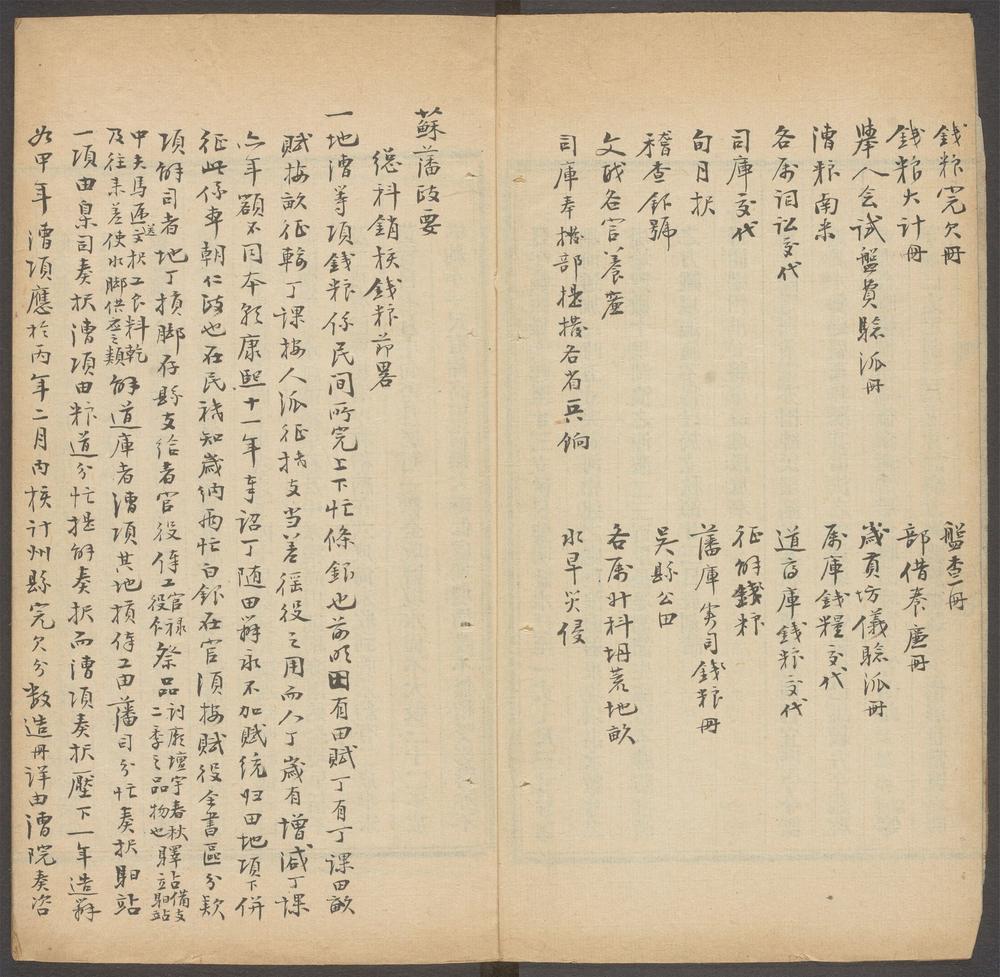 錢粮完欠冊
盤查冊
錢粮大計冊
部借養廉冊
舉人会試盤費驗派冊
歲貢坊儀驗派冊
漕粮南米
属庫錢糧交代
各属詞訟交代
道府庫錢粮交代
司庫交代
征解錢粮
旬月报
藩庫寅司錢粮冊
稽查釘號
吳縣公田
文武各官養廉
各属升科坍荒地畝
司庫奉撥部提撥各省兵餉
水旱災侵
蘇藩政要
總科銷核錢粮節畧
一地漕等項錢粮係民間所完上下忙條銀也前明田有田賦丁有丁課田畝
賦按畝征輸丁課按人派征撥支当差徭役之用而人丁歲有增減丁課
亦年額不同本朝康熙十一年奉詔丁随田辦永不加賦統归田地項下併
征此係本朝仁政也在民祇知歲納兩忙白銀在官須按賦役全書區分款
項解司者地丁損脚存縣支給者官役俸工官禄役食祭品祠廟壇宇春秋二季之品物也驛站備支
中夫馬逓送文报工食料乾及往来差使水脚供應之類解道庫者漕項其地損俸工由藩司分忙奏报驛站
一項由臬司奏报漕項由粮道分忙提解奏报而漕項奏报壓下一年造辦
如甲年漕項應於丙年二月內核計州縣完欠分數造冊詳由漕院奏咨